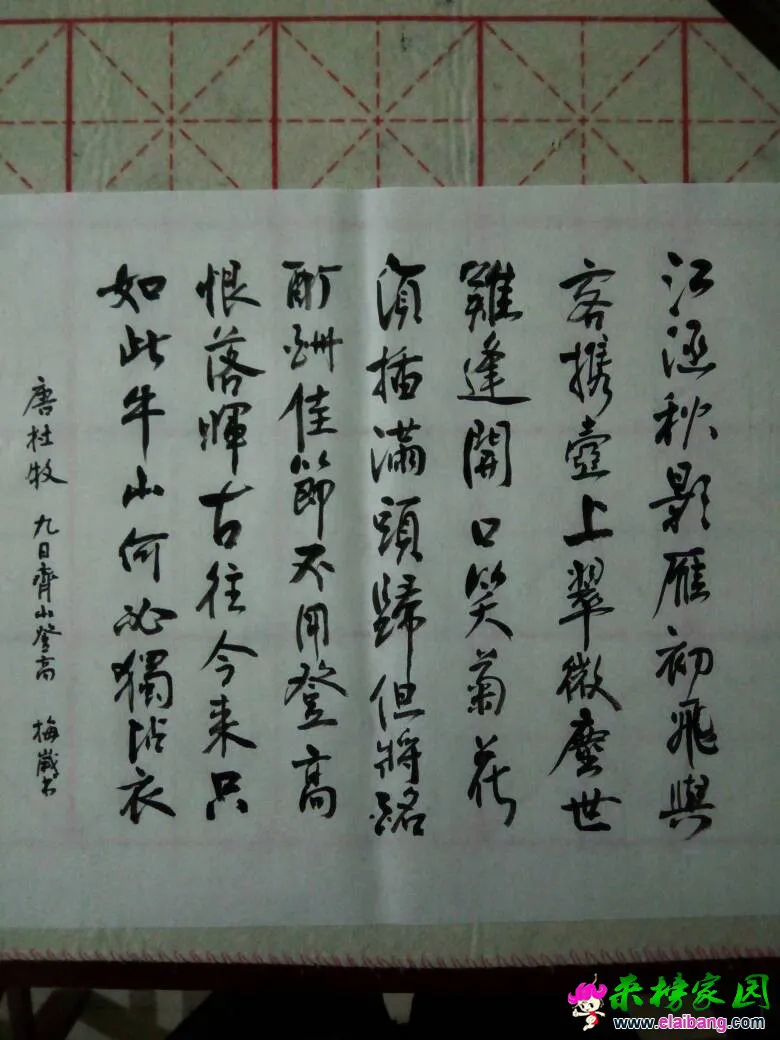 江涵秋影雁初飛與
客攜壺上翠微塵世
難逢開口笑菊花
須插滿頭歸但將酩
酊酬佳節不用登高
恨落暉古往今来只
如此牛山何必獨沾衣
唐杜牧 九日齊山登高 梅嵗书
来榜家园
www.elaibang.com